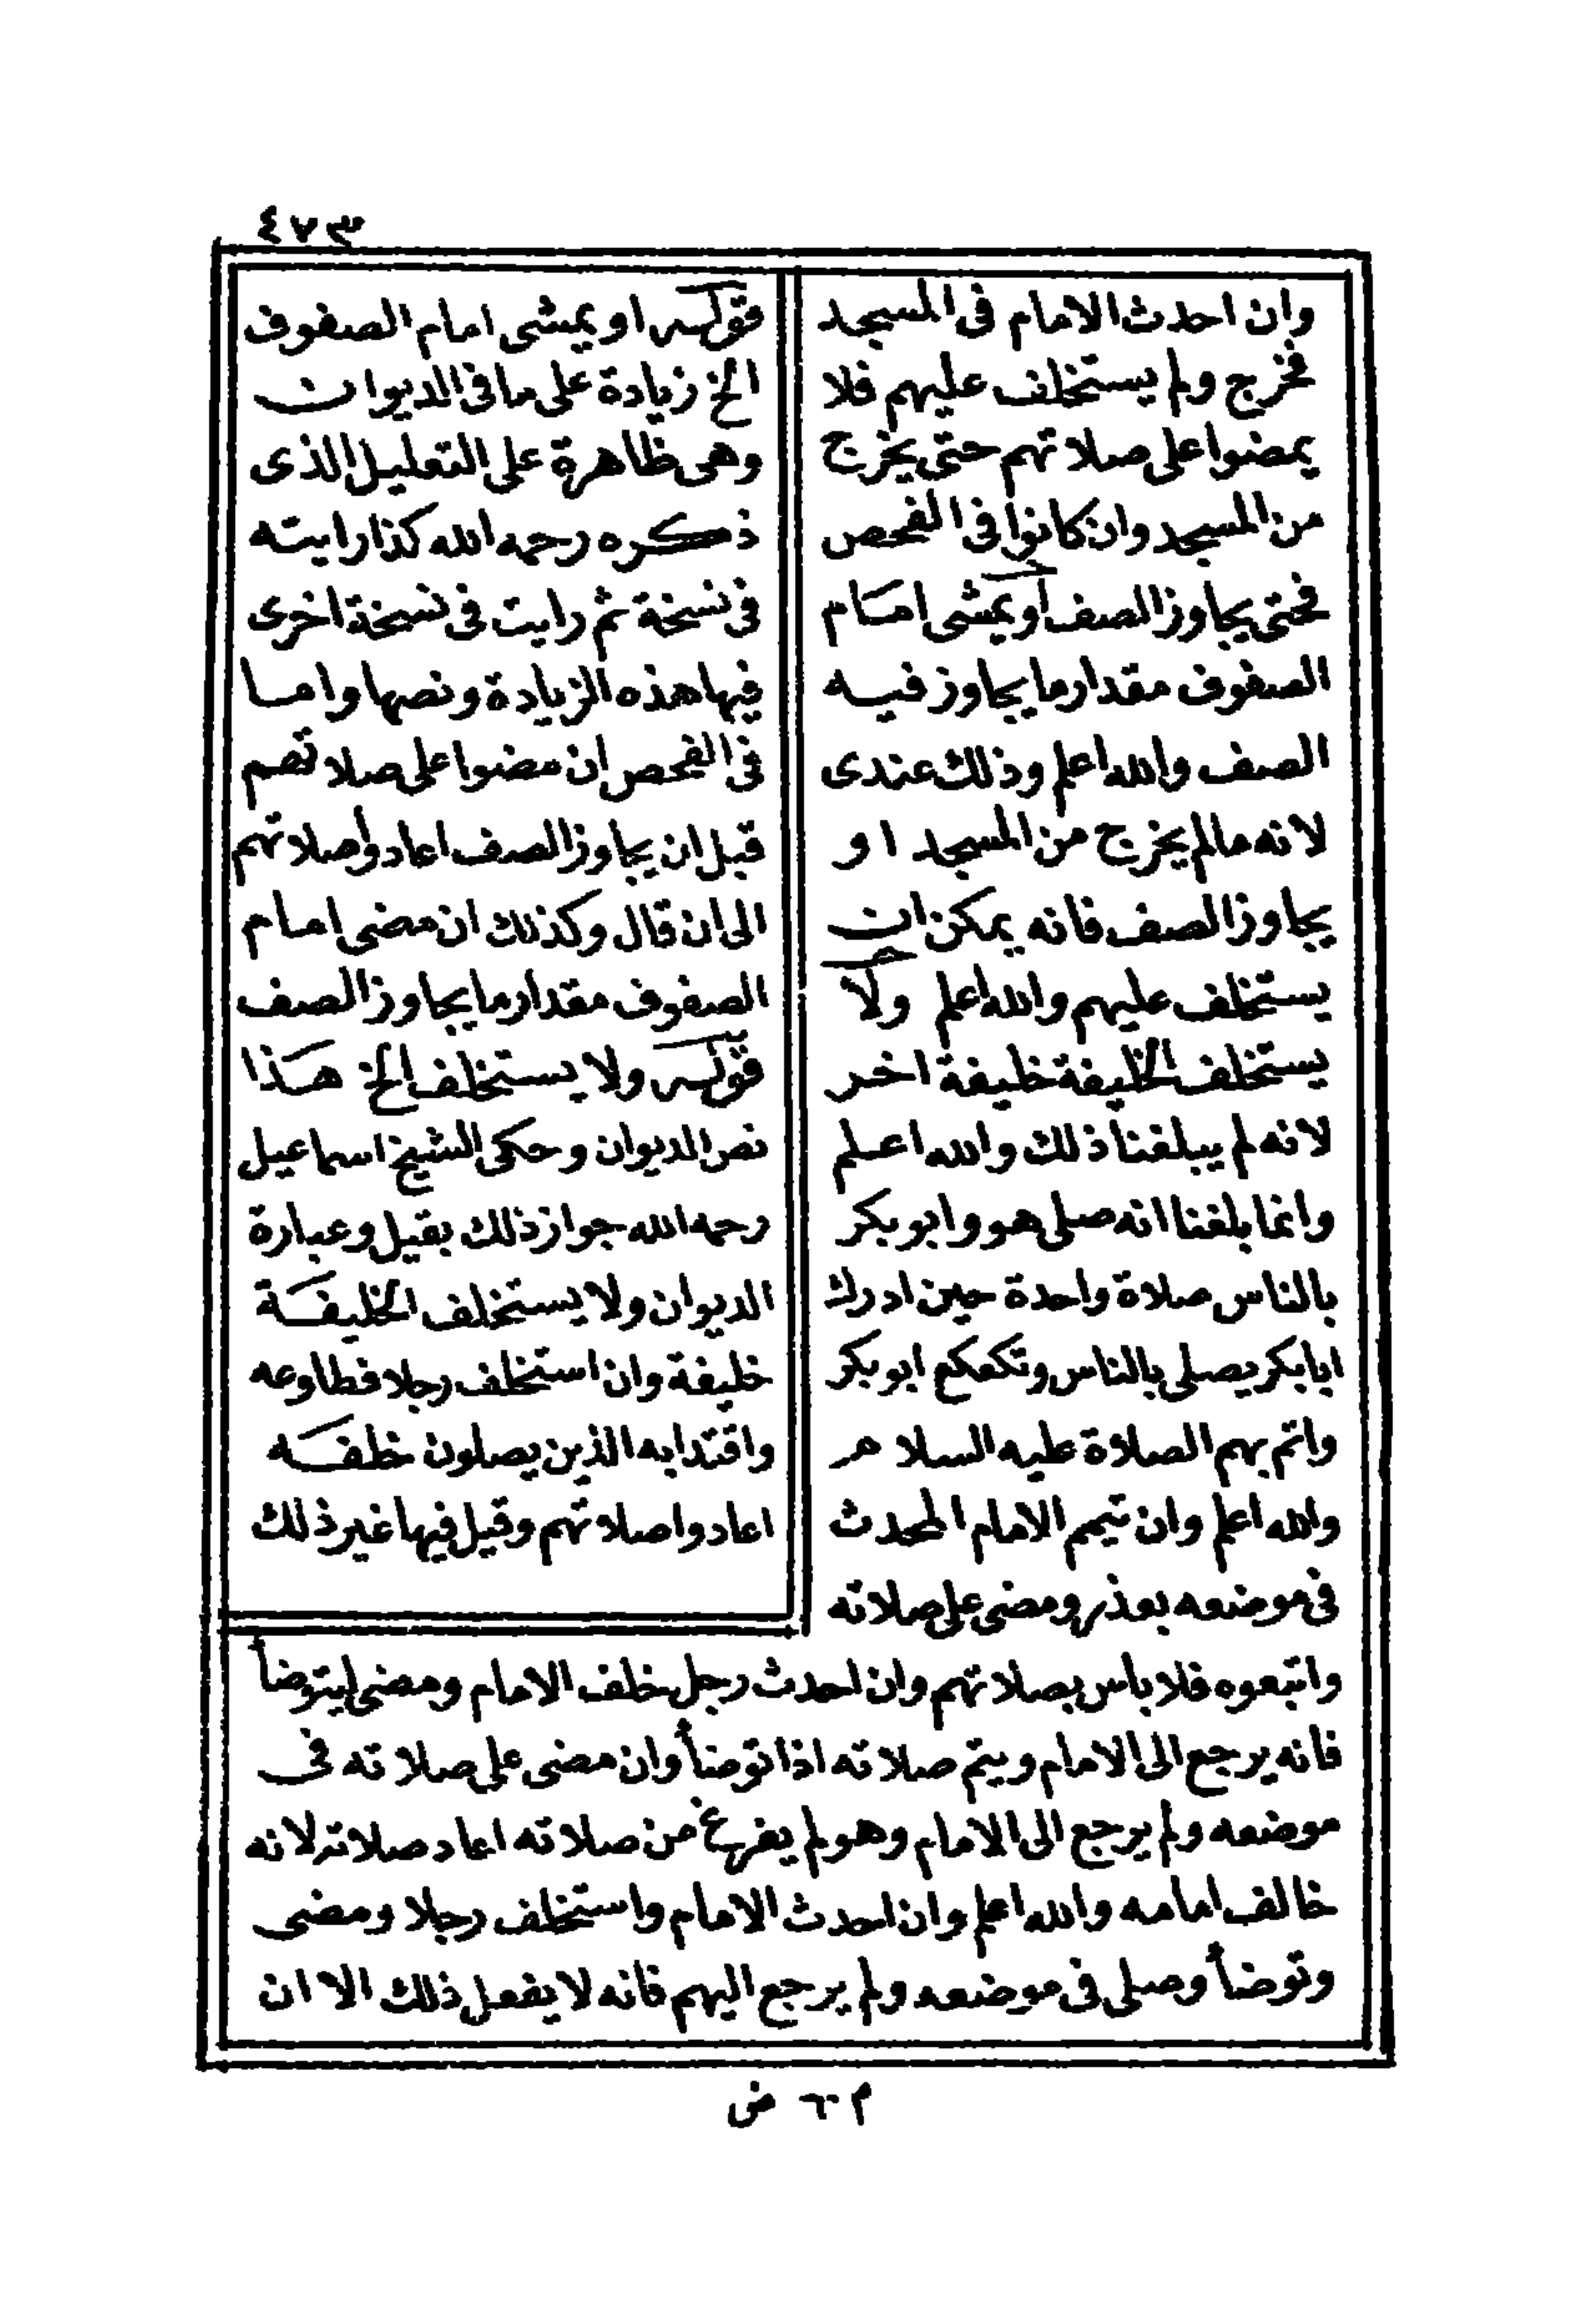 ٤٧٣
وان احدث الامام فى المسجد
فخرج ولم يستخلف عليهم فلا
يمضوا على صلاتهم حتى يخرج
من المسجد وان كانوا فى الفحص
فحتى يجاوز الصف أو يمشى امام
الصفوف مقدار ما يجاوز فيه
الصف والله اعلم وذلك عندى
لانه مالم يخرج من المسجد او
يجاوز الصف فانه يمكن ان
يستخلف عليهم والله اعلم ولا
يستخلف الخليفة خليفة اخر
لانه لم يبلغنا ذلك والله اعلم
وانما بلغنا انه صلى هو وابو بكر
بالناس صلاة واحدة حين ادرك
ابا بكر يصلى بالناس وتكعكع ابو بكر
واتم بهم الصلاة عليه السلام
والله اعلم وان تيمم الامام المحدث
فى موضعه بعذر ومضى على صلاته
قوله او يمشى امام الصفوف
الخ زيادة على ما فى الديوان
وهى ظاهرة على التعليل الذى
ذكره رحمه الله كذا رايته
فى نسخة ثم رايت فى نسخة اخرى
فيها هذه الزيادة ونصها واما
فى الفحص ان مضوا على صلاتهم
قبل ان يجاوز الصف اعادوا صلاتهم
الى ان قال وكذلك ان مضى امام
الصفوف مقدار ما يجاوز الصف
قوله ولا يستخلف الخ هذا
نص الديوان وحكى الشيخ اسماعيل
رحمه الله جواز ذلك بقيل وعبارة
الديوان ولا يستخلف الخليفة
خليفة وان استخلف رجلا فطاوعه
واقتدا به الذين يصلون خلفه
اعادوا صلاتهم وقيل فيها غير ذلك
واتبعوه فلا باس بصلاتهم وان احدث رجل خلف الامام ومضى ليتوضأ
فانه يرجع الى الامام ويتم صلاته اذا توضأ وان مضى على صلاته فى
موضعه ولم يرجع الى الامام وهو لم يفرغ من صلاته اعاد صلاته لانه
خالف امامه والله اعلم وان احدث الامام واستخلف رجلا ومضى
وتوضأ وصلى فى موضعه ولم يرجع اليهم فانه لا يفعل ذلك الا ان
م ٦٠ ض